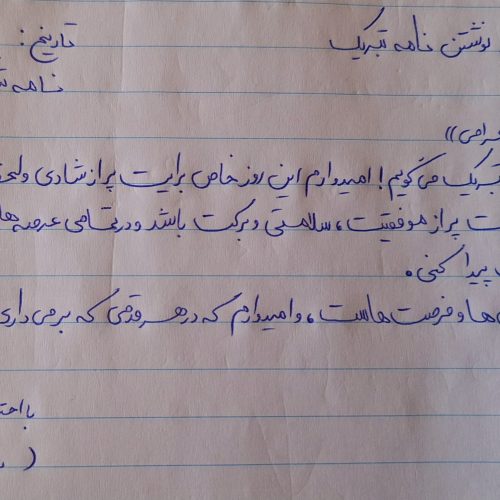 نوشتن نامه تبریک
تاریخ :
نامه
))
تبریک می‌گویم! امیدوارم این روز خاص برایت پر از شادی و
پر از موفقیت، سلامتی و برکت باشد و در تمامی عرصه ها
پیدا کنی.
ها و فرصت هاست، و امیدوارم که در هر قدمی که برمی داری
با
(